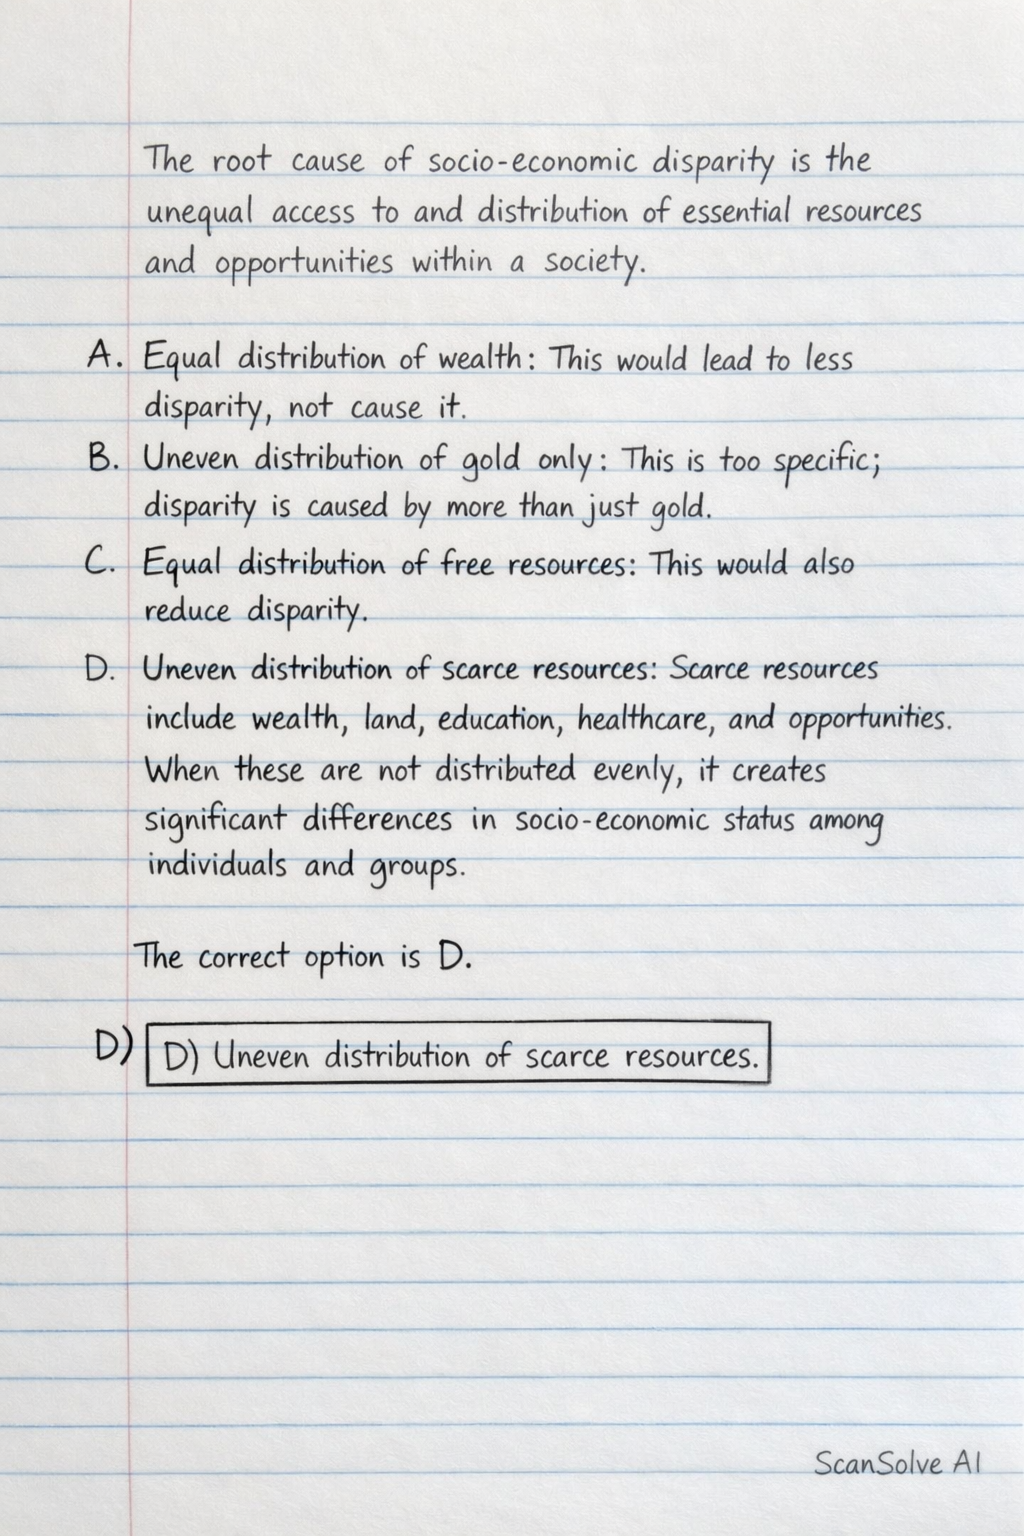 The root cause of socio-economic disparity is the
unequal access to and distribution of essential resources
and opportunities within a society.
A. Equal distribution of wealth: This would lead to less
disparity, not cause it.
B. Uneven distribution of gold only: This is too specific;
disparity is caused by more than just gold.
C. Equal distribution of free resources: This would also
reduce disparity.
D. Uneven distribution of scarce resources: Scarce resources
include wealth, land, education, healthcare, and opportunities.
When these are not distributed evenly, it creates
significant differences in socio-economic status among
individuals and groups.
The correct option is D.
D) D) Uneven distribution of scarce resources.
ScanSolve AI